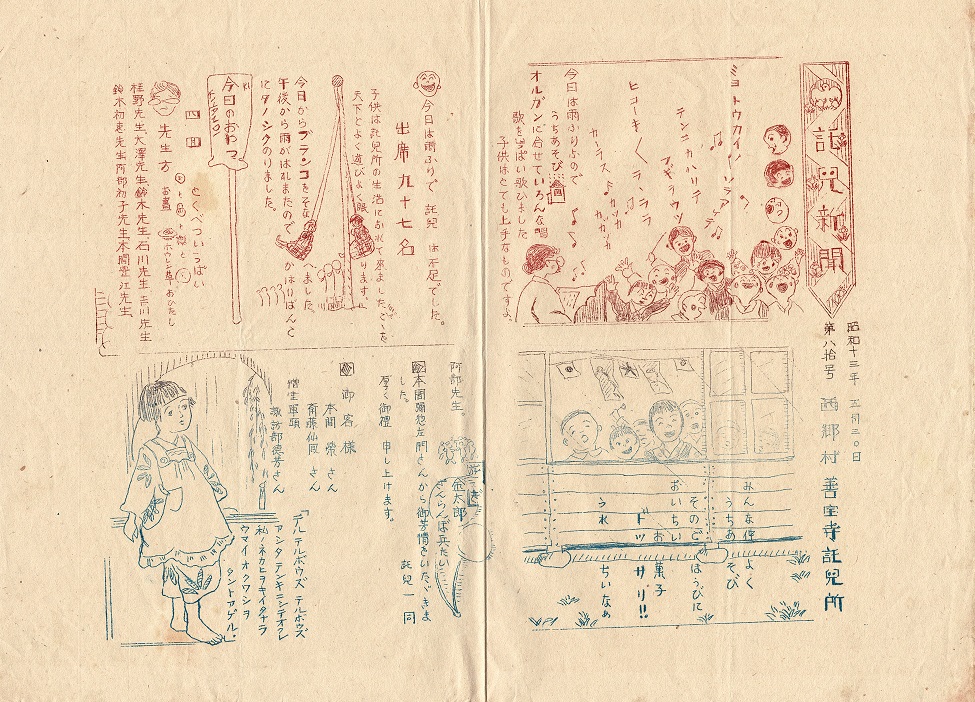 託児新聞
昭和十三年 五月三〇日
第八拾号 西郷村 善宝寺託児所
ミヨトウカイノソラアケテ
テンニカハリテ
フギヲウツ
ヒコーキ ラララ
カーラス カッカッカ
今日は雨ふりなので
うちあそび
オルガンに合せていろんな唱
歌をいっぱい歌ひました
子供はとても上手なものですよ
今日は雨ふりで 託児 は不足でした。
出席九十七名
子供は託児所の生活に
今日からブランコを
午後から雨がはれましたので かはりばんこ
にタノシクのりました。
今日のおやつ
四日 とくべついっぱい
先生方
桂野先生、大澤先生、鈴木先生、石川先生
鈴木初恵先生、阿部初子先生、本間豊江先生、
みんな仲よく
うちあそび
そのごほうびに
おいちい お菓子
ドッサリ!!
うれちいなぁ
阿部先生。
金太郎
さんらんぼ兵たい
本間
さんから御芳情をいたゞきま
した。
厚く御禮 申し上げます。
託児一同
御客様
本間 榮 さん
斎藤仙 さん
諏訪部徳芳さん
「テルテルボウズ テルボウズ
アシタ テンキニシテオクレ
私ノネガヒヲキイタナラ
ウマイオクワシヲ
タントアゲル」